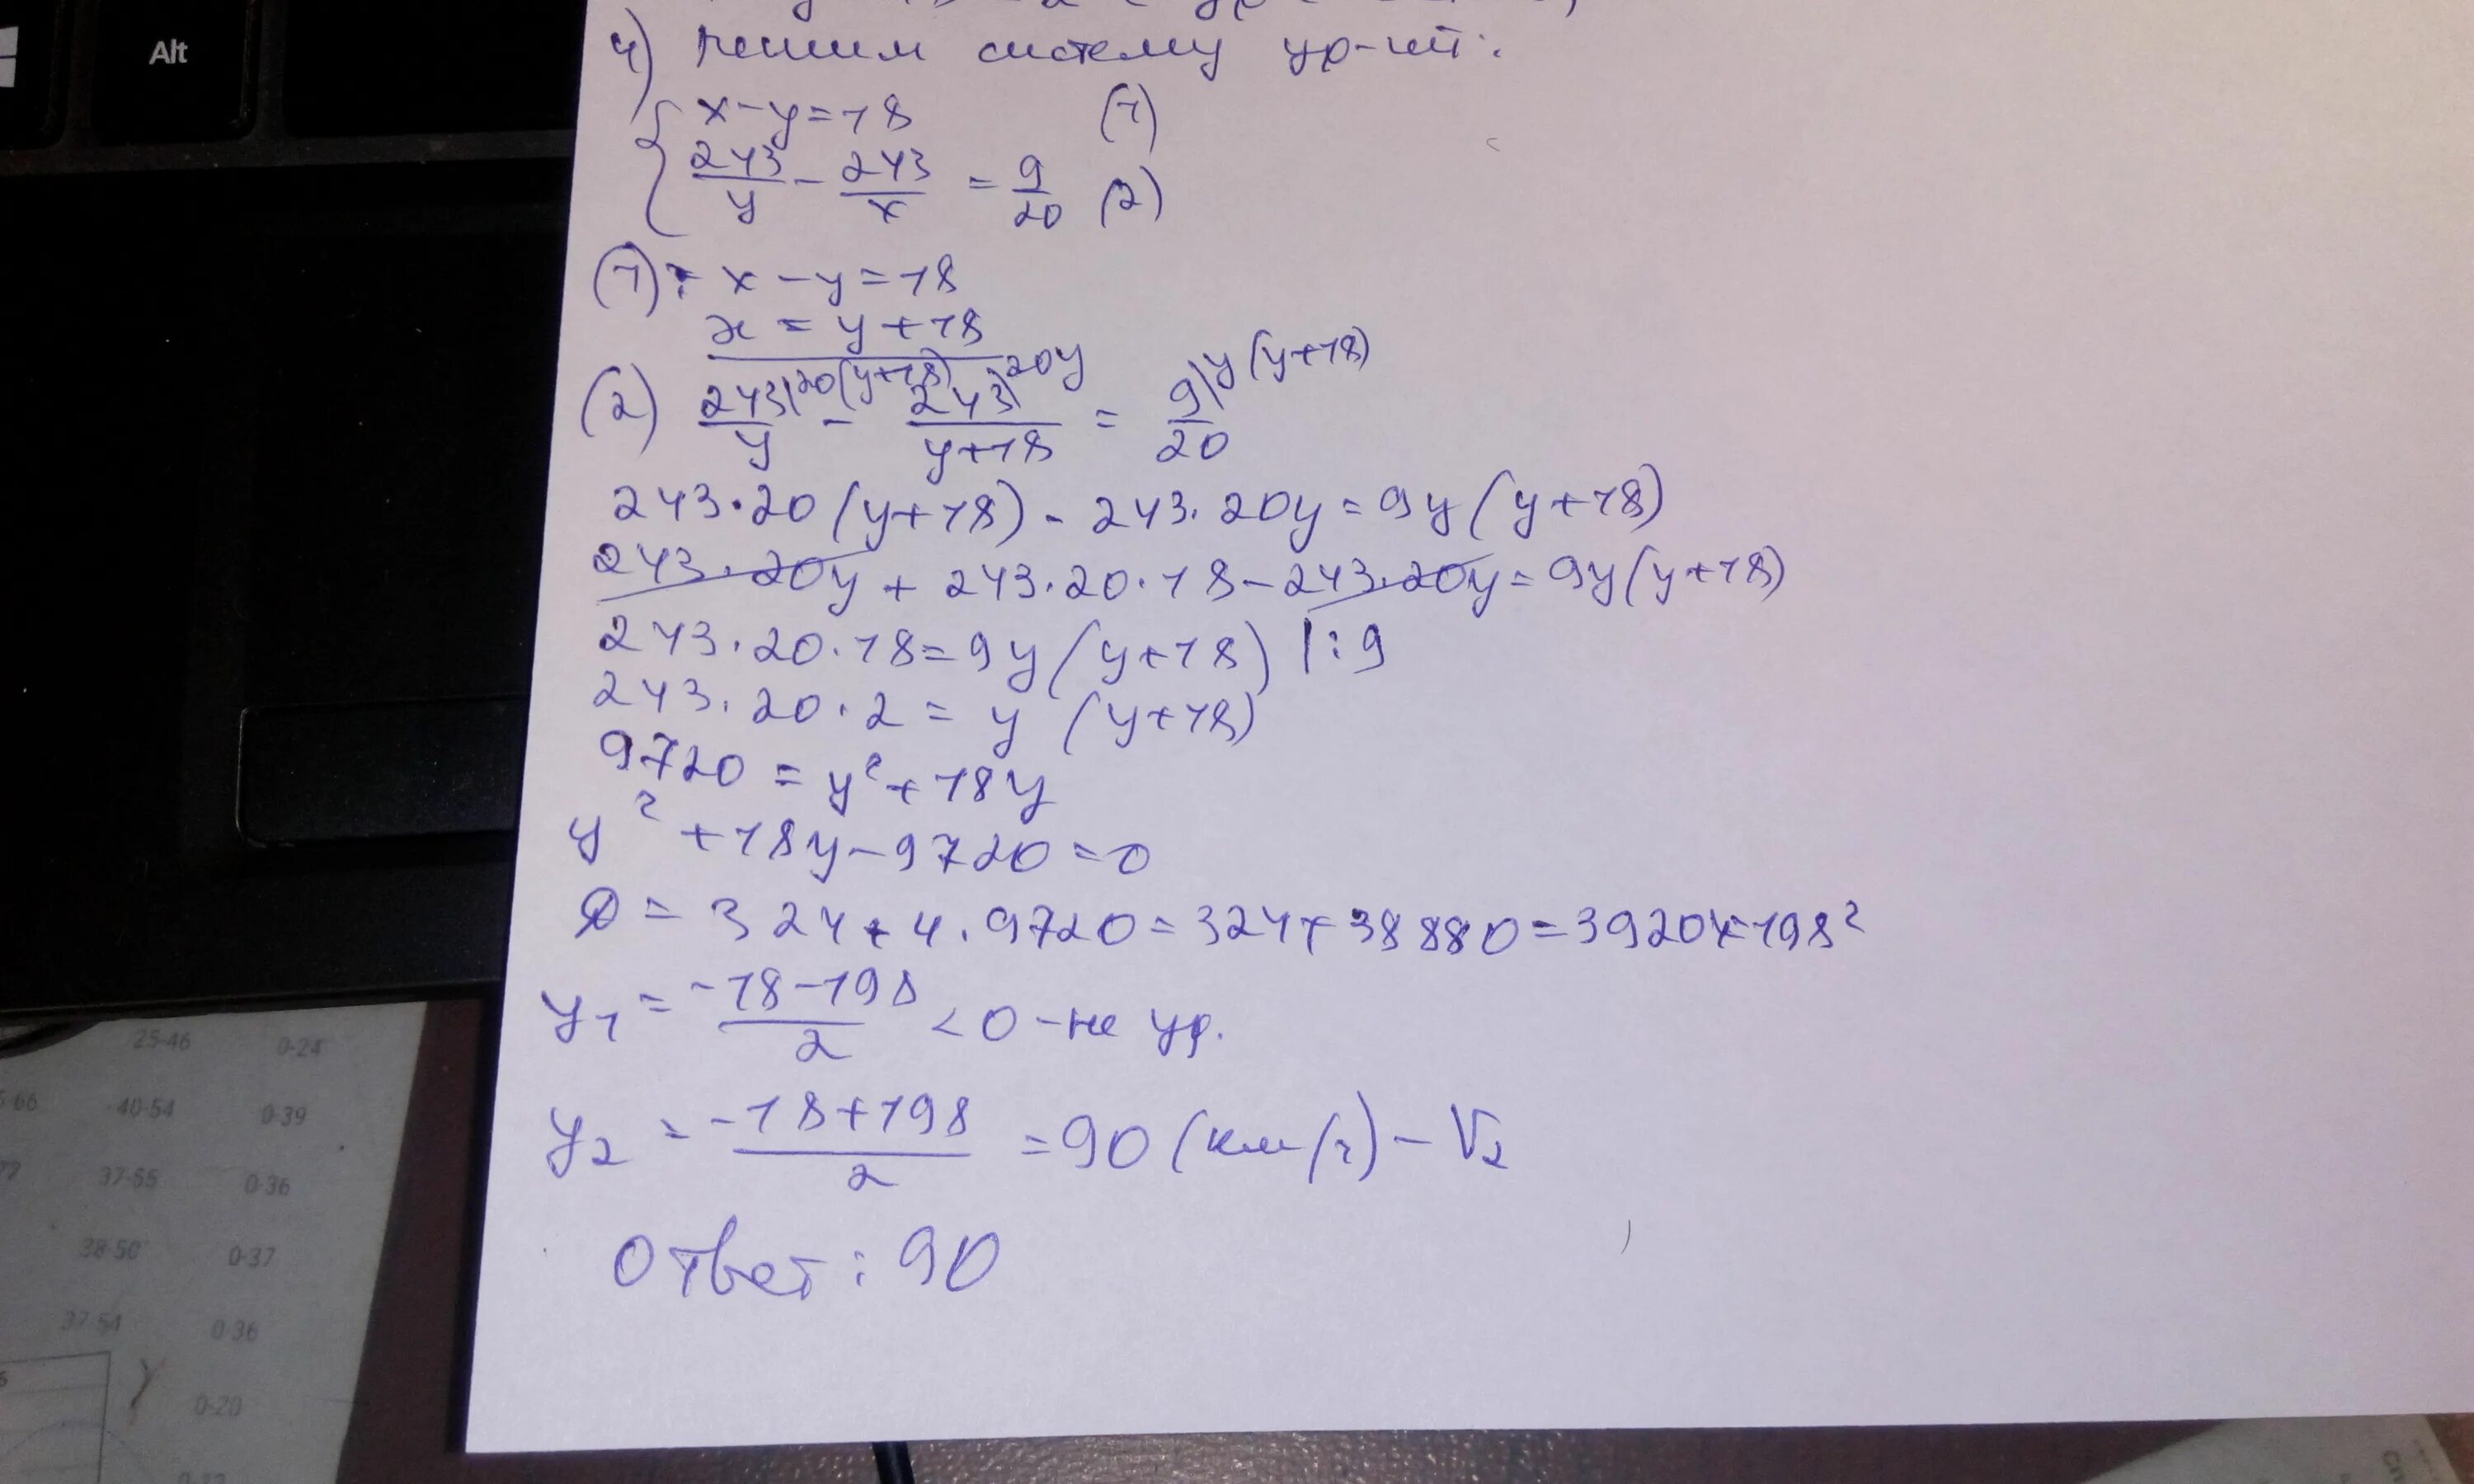 Alt
4) Решим систему ур-ний:
{ x-y=18 (1)
243/y - 243/x = 9/20 (2)
(1): x-y=18
x = y+18
(2) 243/y |20(y+18) - 243/(y+18) |20y = 9/20 |y(y+18)
243·20(y+18) - 243·20y = 9y(y+18)
243·20y + 243·20·18 - 243·20y = 9y(y+18)
243·20·18 = 9y(y+18) |:9
243·20·2 = y(y+18)
9720 = y²+18y
y²+18y-9720=0
D = 324+4·9720 = 324+38880 = 39204 = 198²
y₁ = (-18-198)/2 <0 - не ур.
y₂ = (-18+198)/2 = 90 (км/ч) - V₂
Ответ: 90
25-46 0-24
40-54 0-39
37-55 0-36
38-50 0-37
37-54 0-36
0-20